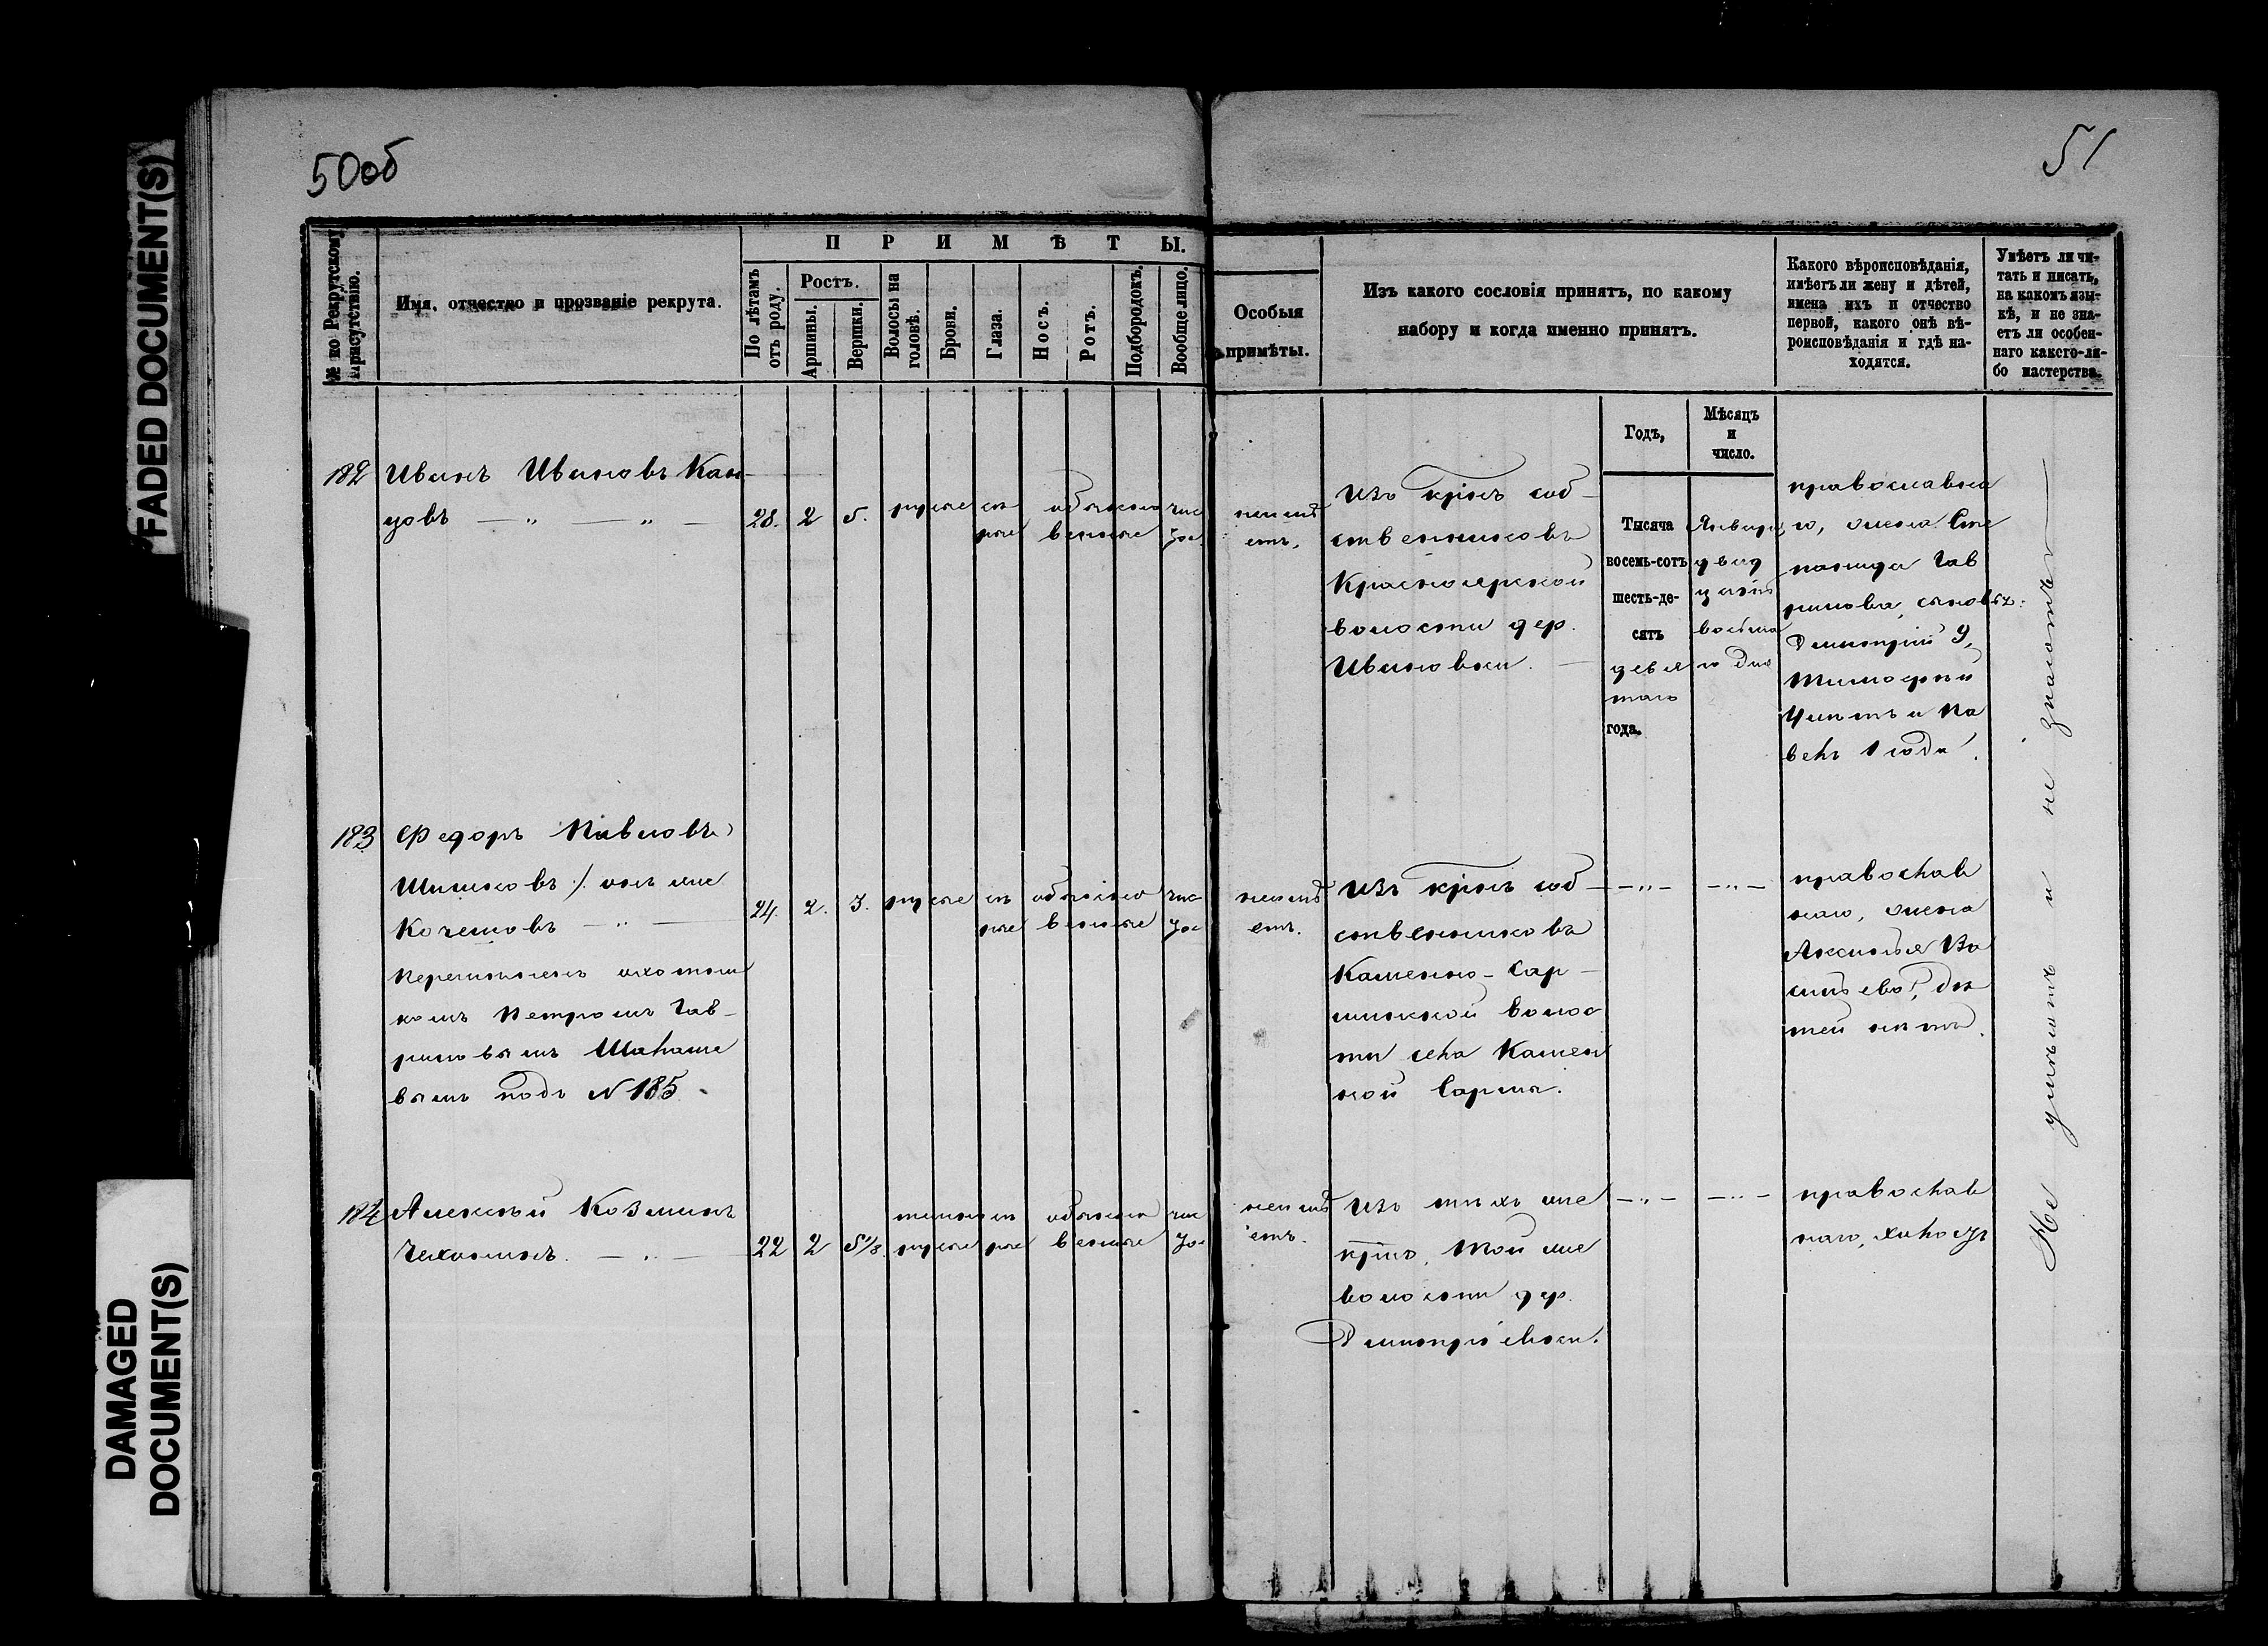 FADED DOCUMENT(S)
DAMAGED
DOCUMENT(S)
50об
51
№ по Рекрутскому
присутствію.
Имя, отчество и прозваніе рекрута.
ПРИМѢТЫ.
По лѣтамъ
отъ роду.
Ростъ.
Аршины.
Вершки.
Волосы на
головѣ.
Брови.
Глаза.
Носъ.
Ротъ.
Подбородокъ.
Вообще лицо.
Особыя
примѣты.
Изъ какого сословія принятъ, по какому
набору и когда именно принятъ.
Годъ,
Мѣсяцъ
и
число.
Какого вѣроисповѣданія,
имѣетъ ли жену и дѣтей,
имена ихъ и отчество
первой, какого онѣ вѣ-
роисповѣданія и гдѣ на-
ходятся.
Умѣетъ ли чи-
тать и писать,
на какомъ язы-
кѣ, и не зна-
етъ ли особен-
наго какого-ли-
бо мастерства.
182
Иванъ Ивановъ Кан-
цовъ — „ — „ —
28. 2 5. русые сѣ обыкно чис
рые венные тое
неимѣ
етъ.
Изъ крест соб-
ственниковъ
Красноярской
волости дер.
Ивановки. —
Тысяча
восемь-сотъ
шесть-де-
сятъ
девя
таго
года.
Января
двад
цать
восьма
го дня
православна
го, жена Сте
панида Гав
рилова, сыновья:
Дмитрій 9,
Тимофей
4 лѣтъ и Па
велъ 1 года.
183
Федоръ Павловъ
Шишковъ ./ онъ же
Кочетовъ — „ —
перемѣненъ охотни
комъ Петромъ Гав-
риловымъ
вымъ подъ № 185.
24. 2. 3. русые сѣ обыкно чис
рые венные тое
неимѣ
етъ.
Изъ крест соб-
ственниковъ
Каменно-Сар-
минской волос
ти села Камен
ной Сармы.
— „ — — „ —
православ
наго, жена
Аксинья Ва
сильева, дѣ
тей нѣтъ.
184
Алексѣй Козминъ
— „ —
22 2 5 1/8. темно сѣ обыкно чис
русые рые венные тое
неимѣ
етъ.
Изъ тѣхъ же
крест, той же
волости дер.
Дмитріевки.
— „ — — „ —
православ
наго, холостъ
Не умѣетъ и не знаетъ —